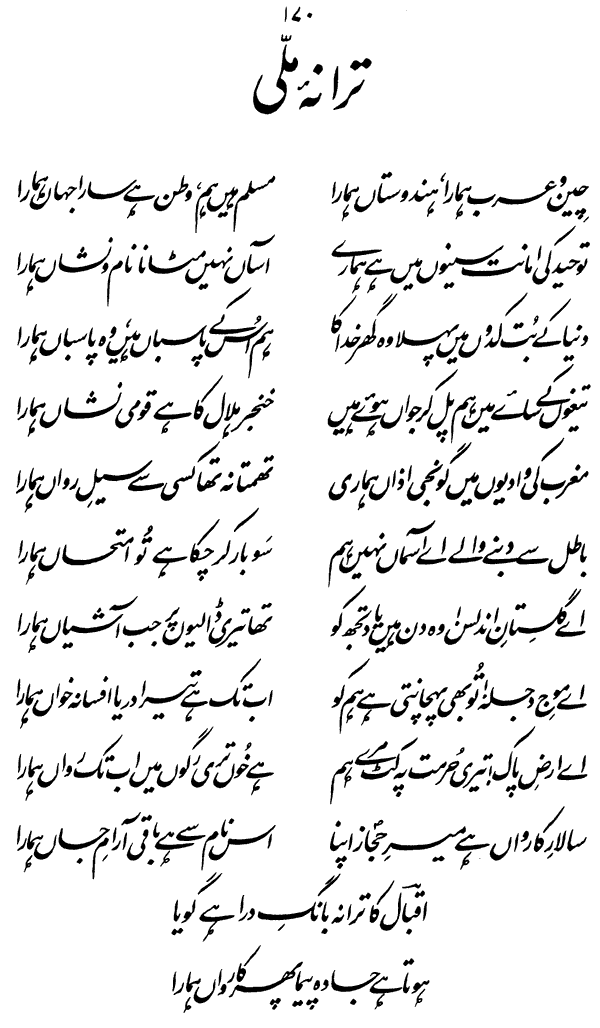 ۱۷۰
ترانۂ ملّی
چین و عرب ہمارا، ہندوستاں ہمارا مسلم ہیں ہم، وطن ہے سارا جہاں ہمارا
توحید کی امانت سینوں میں ہے ہمارے آساں نہیں مٹانا نام و نشاں ہمارا
دنیا کے بُت کدوں میں پہلا وہ گھر خدا کا ہم اُس کے پاسباں ہیں، وہ پاسباں ہمارا
تیغوں کے سائے میں ہم پل کر جواں ہوئے ہیں خنجر ہلال کا ہے قومی نشاں ہمارا
مغرب کی وادیوں میں گونجی اذاں ہماری تھمتا نہ تھا کسی سے سیلِ رواں ہمارا
باطل سے دبنے والے اے آسماں نہیں ہم سَو بار کر چکا ہے تُو امتحاں ہمارا
اے گلِستانِ اندلس! وہ دن ہیں یاد تجھ کو تھا تیری ڈالیوں پر جب آشیاں ہمارا
اے موجِ دجلہ! تُو بھی پہچانتی ہے ہم کو اب تک ہے تیرا دریا افسانہ خواں ہمارا
اے ارضِ پاک! تیری حُرمت پہ کٹ مرے ہم ہے خُوں تری رگوں میں اب تک رواں ہمارا
سالارِ کارواں ہے میرِ حجاز اپنا اس نام سے ہے باقی آرامِ جاں ہمارا
اقبال کا ترانہ بانگِ درا ہے گویا
ہوتا ہے جادہ پیما پھر کارواں ہمارا